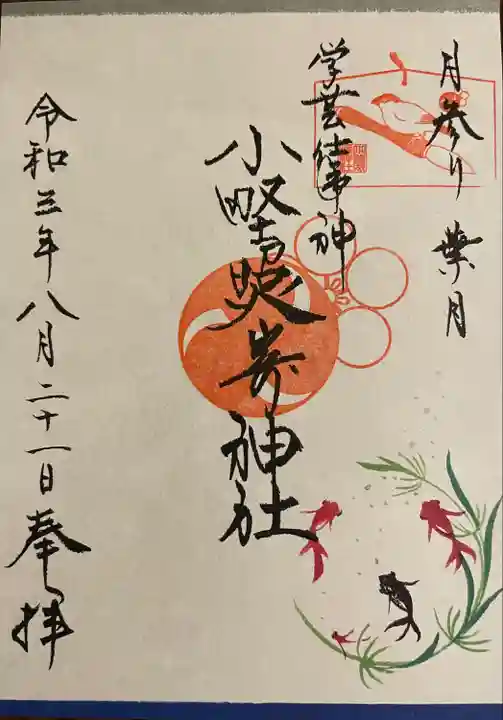 月参り 葉月
学芸仕事神
小野照崎神社
令和三年八月二十一日奉拝